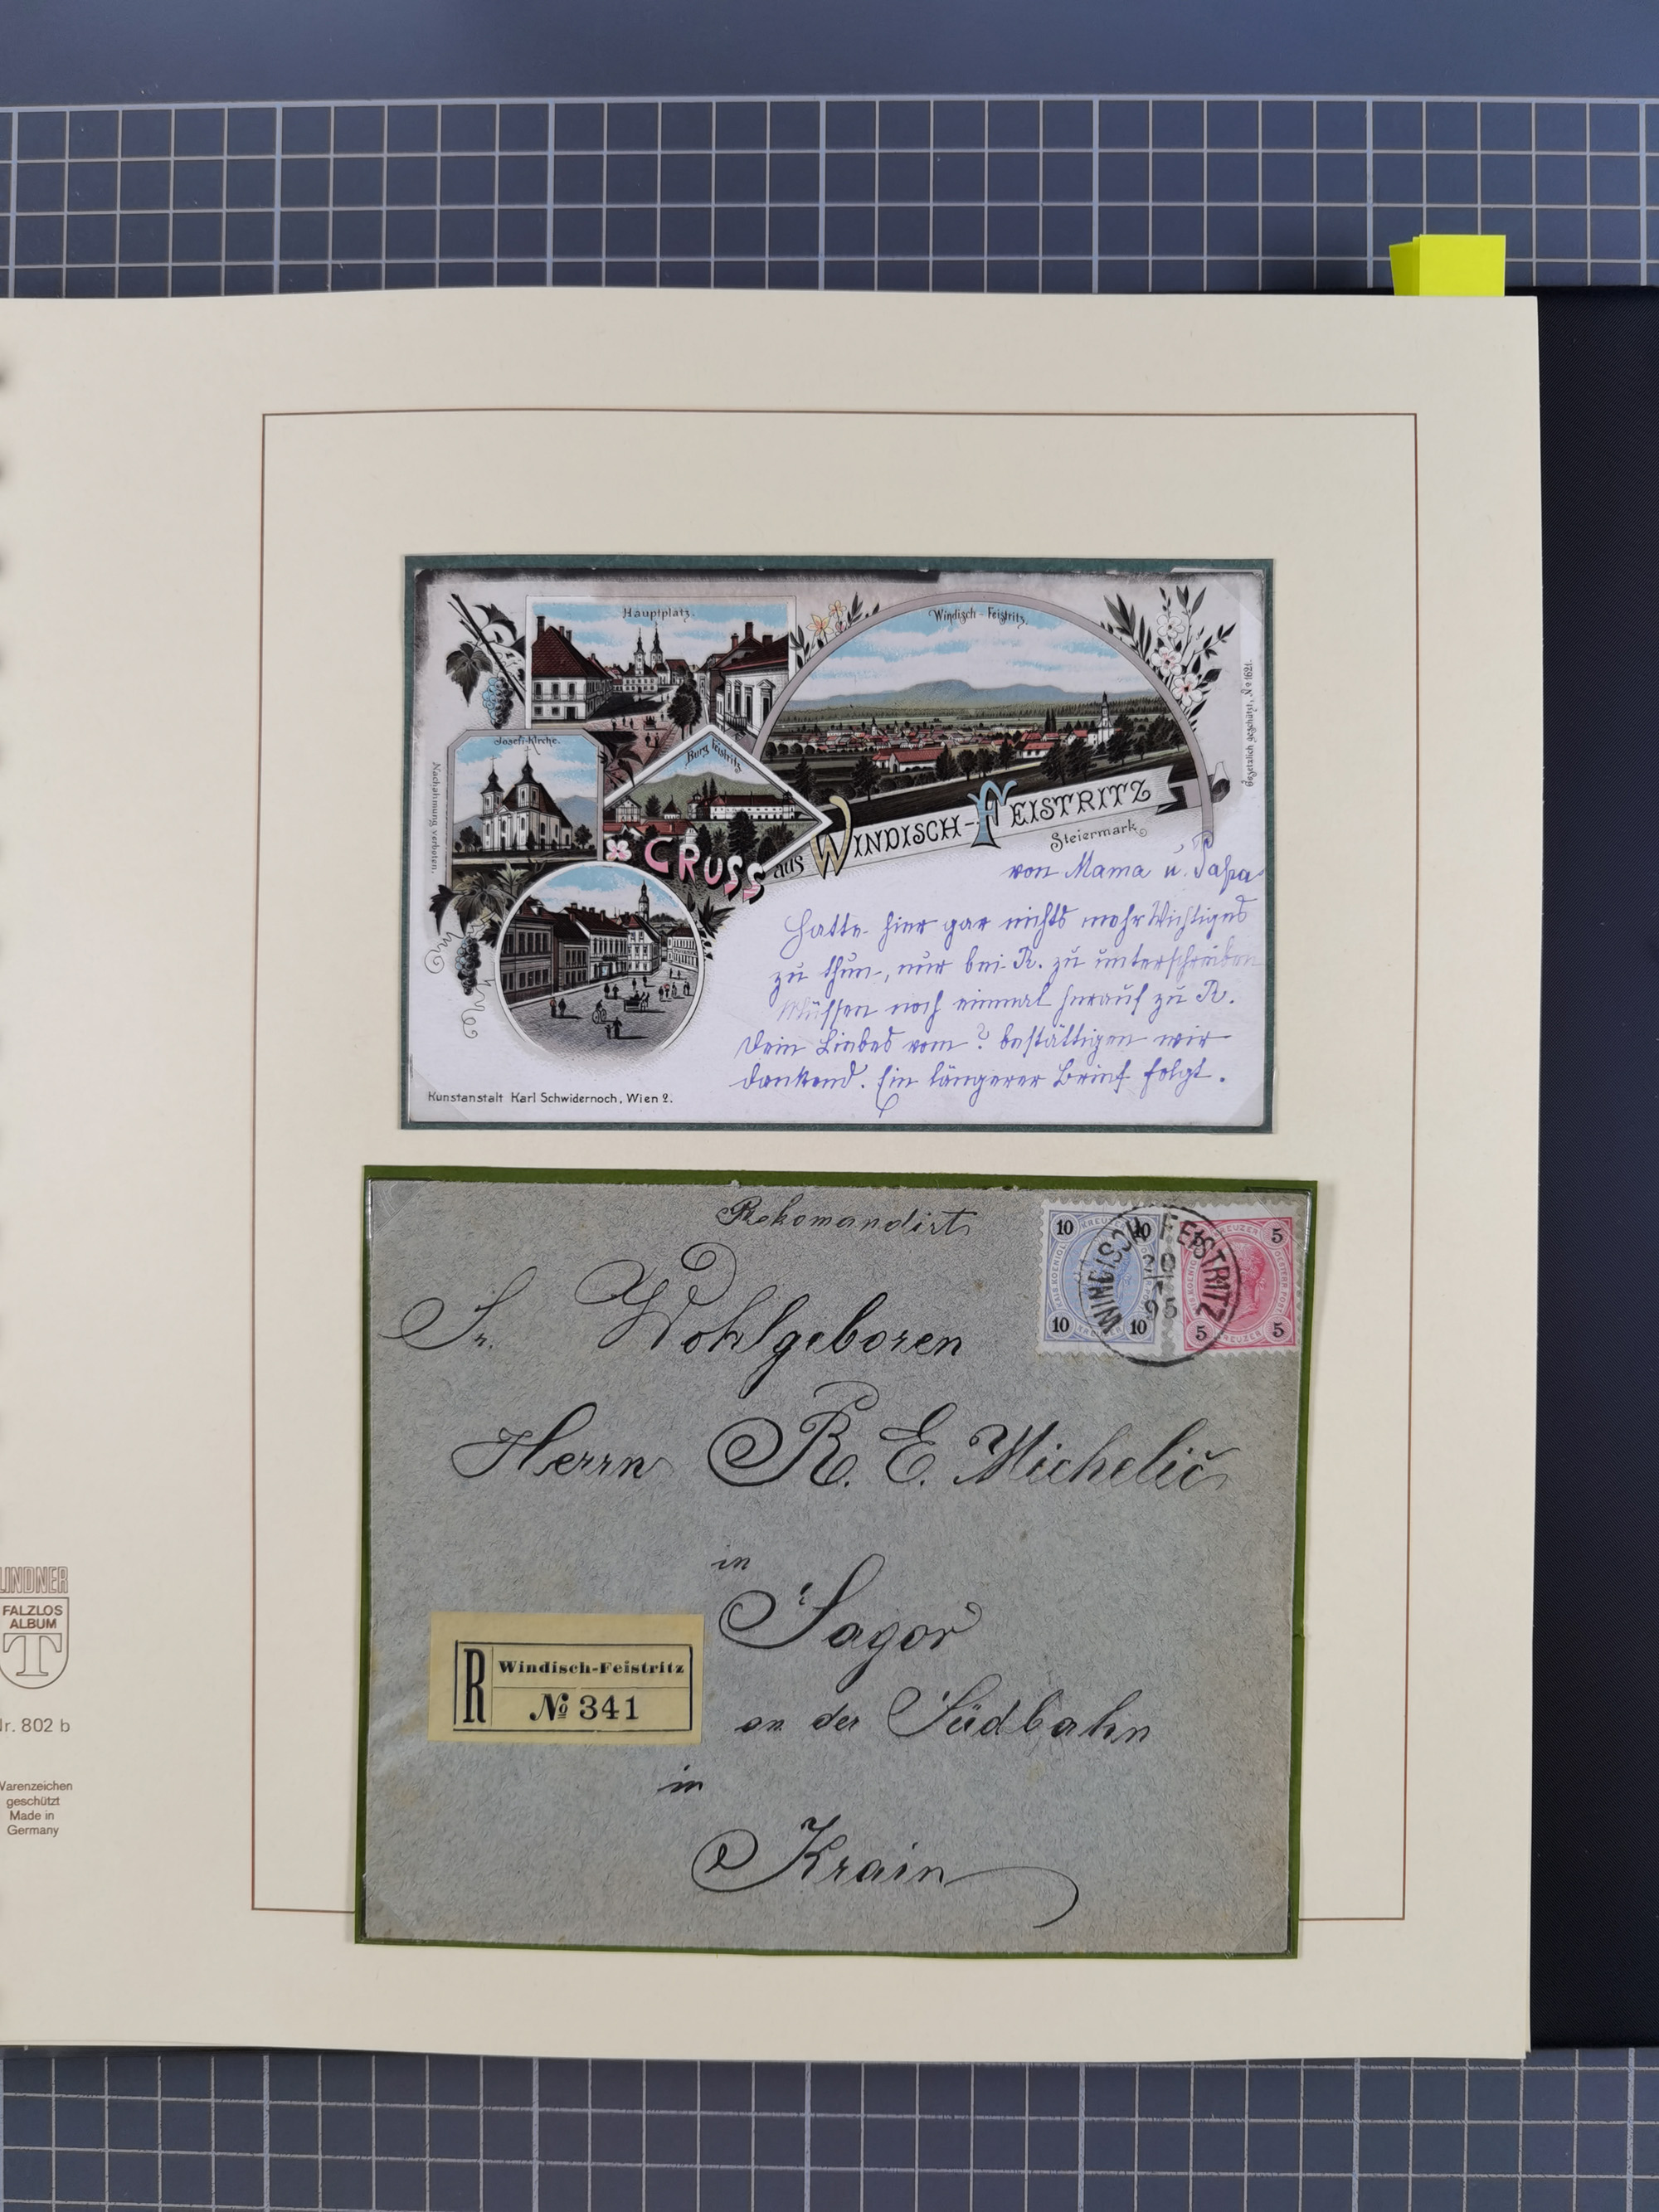 Hauptplatz.
Windisch-Feistritz.
Josefi-Kirche.
Burg Feistritz
Nachahmung verboten.
Gesetzlich geschützt, No 1621.
GRUSS aus WINDISCH-FEISTRITZ
Steiermark
von Mama u. Papa
Hatte hier gar nichts mehr Wichtiges
zu thun, nur bei R. zu unterschreiben
Müssen noch einmal herauf zu R.
Dein Liebes vom ? bestättigen wir
dankend. Ein längerer Brief folgt.
Kunstanstalt Karl Schwidernoch, Wien 2.
Rekomandirt
10 KREUZER 10
10 10
5 KREUZER 5
5 KREUZER 5
WINDISCH FEISTRITZ
95
Sr. Wohlgeboren
Herrn R. E. Michelič
in
Sagor
an der Südbahn
in
Krain
R Windisch-Feistritz
№ 341
LINDNER
FALZLOS
ALBUM
T
Nr. 802 b
Warenzeichen
geschützt
Made in
Germany